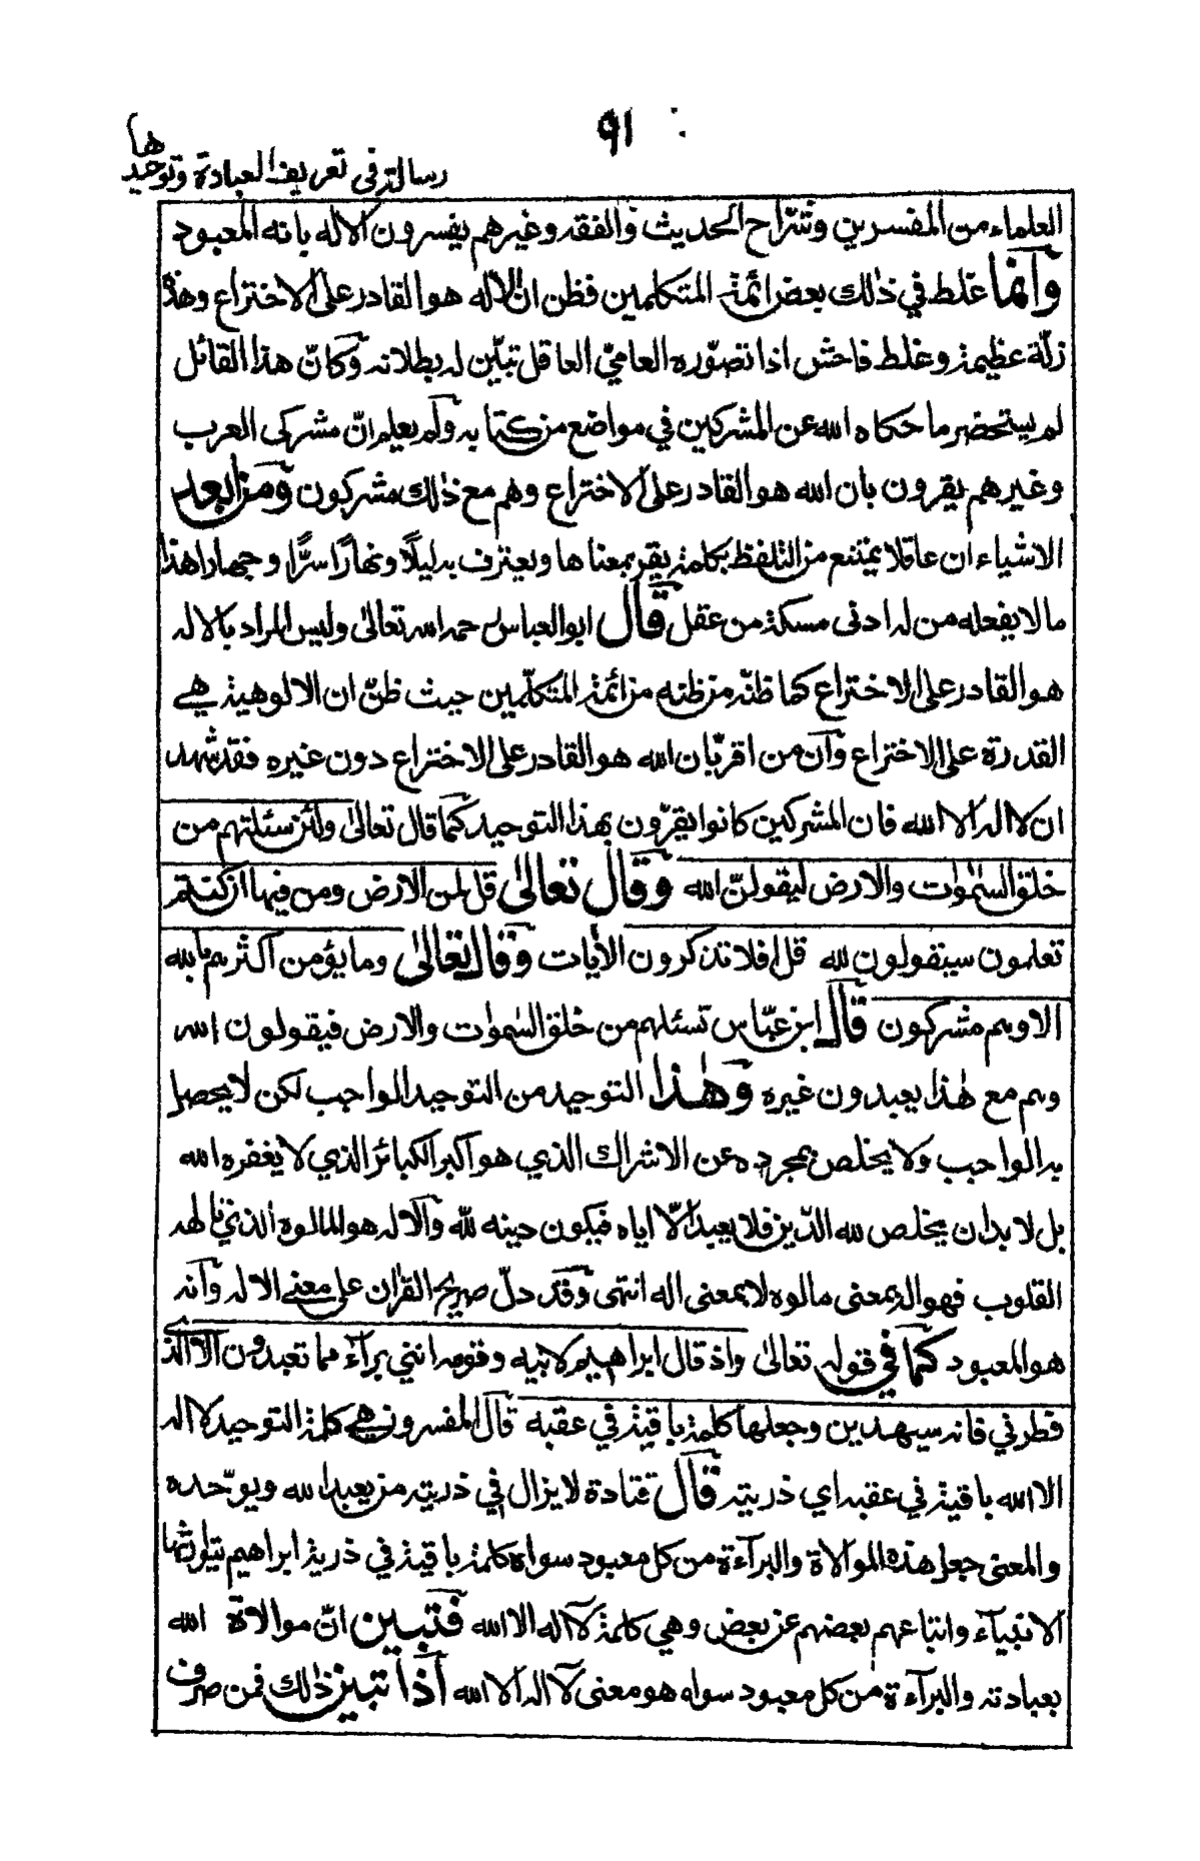 ٩١
رسالة في تعريف العبادة وتوحيدها
العلماء من المفسرين وشرّاح الحديث والفقه وغيرهم يفسرون الاله بانه المعبود
وانما غلط في ذلك بعض ائمة المتكلمين فظن ان الاله هو القادر على الاختراع وهذه
زلّة عظيمة وغلط فاحش اذا تصوّره العاميّ العاقل تبيّن له بطلانه وكانّ هذا القائل
لم يستحضر ما حكاه الله عن المشركين في مواضع من كتابه ولم يعلم انّ مشركي العرب
وغيرهم يقرون بان الله هو القادر على الاختراع وهم مع ذلك مشركون ومن ابعد
الاشياء ان عاقلا يمتنع من التلفظ بكلمة يقر بمعناها ويعترف به ليلًا ونهارًا سرًّا وجهارا هذا
ما لا يفعله من له ادنى مسكة من عقل قال ابو العباس رحمه الله تعالى وليس المراد بالاله
هو القادر على الاختراع كما ظنّه من ظنه من ائمة المتكلّمين حيث ظنّ ان الالوهية هي
القدرة على الاختراع وان من اقرّ بان الله هو القادر على الاختراع دون غيره فقد شهد
ان لا اله الا الله فان المشركين كانوا يقرّون بهذا التوحيد كما قال تعالى ولئن سئلتهم من
خلق السموات والارض ليقولنّ الله وقال تعالى قل لمن الارض ومن فيها ان كنتم
تعلمون سيقولون لله قل افلا تذكرون الأيات وقال تعالى وما يؤمن اكثرهم بالله
الا وهم مشركون قال ابن عبّاس تسئلهم من خلق السموات والارض فيقولون الله
وهم مع هذا يعبدون غيره وهذا التوحيد من التوحيد الواجب لكن لا يحصل
به الواجب ولا يخلص بمجرده عن الاشراك الذي هو اكبر الكبائر الذي لا يغفره الله
بل لا بد ان يخلص لله الدّين فلا يعبد الّا اياه فيكون دينه لله والاله هو المالوه الذي تالهه
القلوب فهو اله بمعنى مالوه لا بمعنى اله انتهى وقد دلّ صريح القرأن على معنى الاله وانه
هو المعبود كما في قوله تعالى واذ قال ابراهيم لابيه وقومه انني برآء مما تعبدون الا الذي
فطرني فانه سيهدين وجعلها كلمة باقية في عقبه قال المفسرون هي كلمة التوحيد لا اله
الا الله باقية في عقبه اي ذريته قال قتادة لا يزال في ذريته من يعبد الله ويوحّده
والمعنى جعل هذه الموالاة والبرآءة من كل معبود سواه كلمة باقية في ذرية ابراهيم يتوارثها
الانبيآء واتباعهم بعضهم عن بعض وهي كلمة لآ اله الا الله فتبين انّ موالاة الله
بعبادته والبرآءة من كل معبود سواه هو معنى لآ اله الا الله اذا تبين ذلك فمن صرف